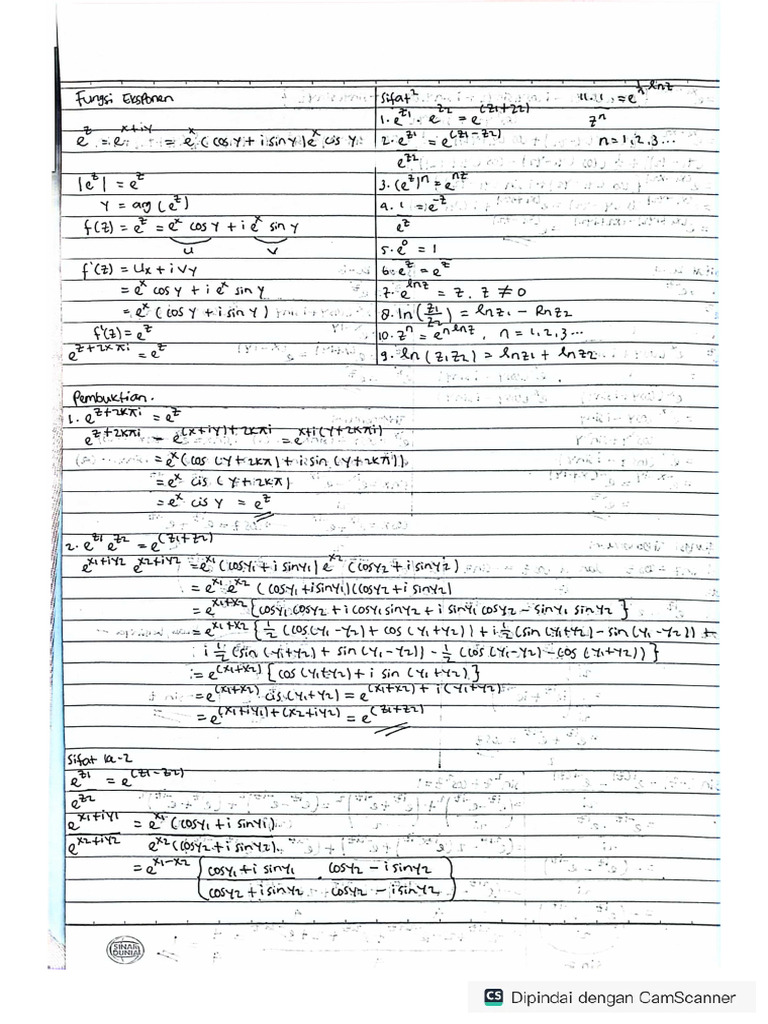 Fungsi Eksponen
e^z = e^{x+iy} = e^x (cos y + i sin y) e^x cis y
|e^z| = e^z
y = arg (e^z)
f(z) = e^z = e^x cos y + i e^x sin y
u v
f'(z) = Ux + i Vy
= e^x cos y + i e^x sin y
= e^x (cos y + i sin y)
f'(z) = e^z
e^{z+2kπi} = e^z
Sifat²
1. e^{z1} · e^{z2} = e^{(z1+z2)}
z^n
2. e^{z1} / e^{z2} = e^{(z1-z2)} n = 1, 2, 3...
3. (e^z)^n = e^{nz}
4. 1 / e^z = e^{-z}
5. e^0 = 1
6. e^z = e^z
7. e^{ln z} = z, z ≠ 0
8. ln (z1/z2) = ln z1 - ln z2
10. z^n = e^{n ln z}, n = 1, 2, 3...
9. ln (z1 z2) = ln z1 + ln z2
Pembuktian.
1. e^{z+2kπi} = e^z
e^{z+2kπi} = e^{(x+iy)+2kπi} = e^{x+i(y+2kπi)}
= e^x (cos (y+2kπ) + i sin (y+2kπ))
= e^x cis (y+2kπ)
= e^x cis y = e^z
2. e^{z1} e^{z2} = e^{(z1+z2)}
e^{x1+iy2} e^{x2+iy2} = e^{x1} (cos y1 + i sin y1) e^{x2} (cos y2 + i sin y2)
= e^{x1} e^{x2} (cos y1 + i sin y1)(cos y2 + i sin y2)
= e^{x1+x2} {cos y1 cos y2 + i cos y1 sin y2 + i sin y1 cos y2 - sin y1 sin y2}
= e^{x1+x2} {½ (cos (y1-y2) + cos (y1+y2)) + i ½ (sin (y1+y2) - sin (y1-y2)) +
i ½ (sin (y1+y2) + sin (y1-y2)) - ½ (cos (y1-y2) - cos (y1+y2))}
= e^{(x1+x2)} {cos (y1+y2) + i sin (y1+y2)}
= e^{(x1+x2)} cis (y1+y2) = e^{(x1+x2) + i(y1+y2)}
= e^{(x1+iy1)+(x2+iy2)} = e^{(z1+z2)}
Sifat ke-2
e^{z1} / e^{z2} = e^{(z1-z2)}
e^{x1+iy1} / e^{x2+iy2} = e^{x1} (cos y1 + i sin y1) / e^{x2} (cos y2 + i sin y2)
= e^{x1-x2} {(cos y1 + i sin y1) / (cos y2 + i sin y2) · (cos y2 - i sin y2) / (cos y2 - i sin y2)}
SINAR
DUNIA
CS Dipindai dengan CamScanner